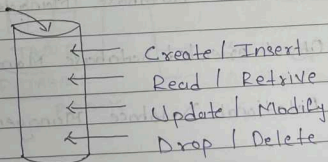 Create / Insert
Read / Retrive
Update / Modify
Drop / Delete